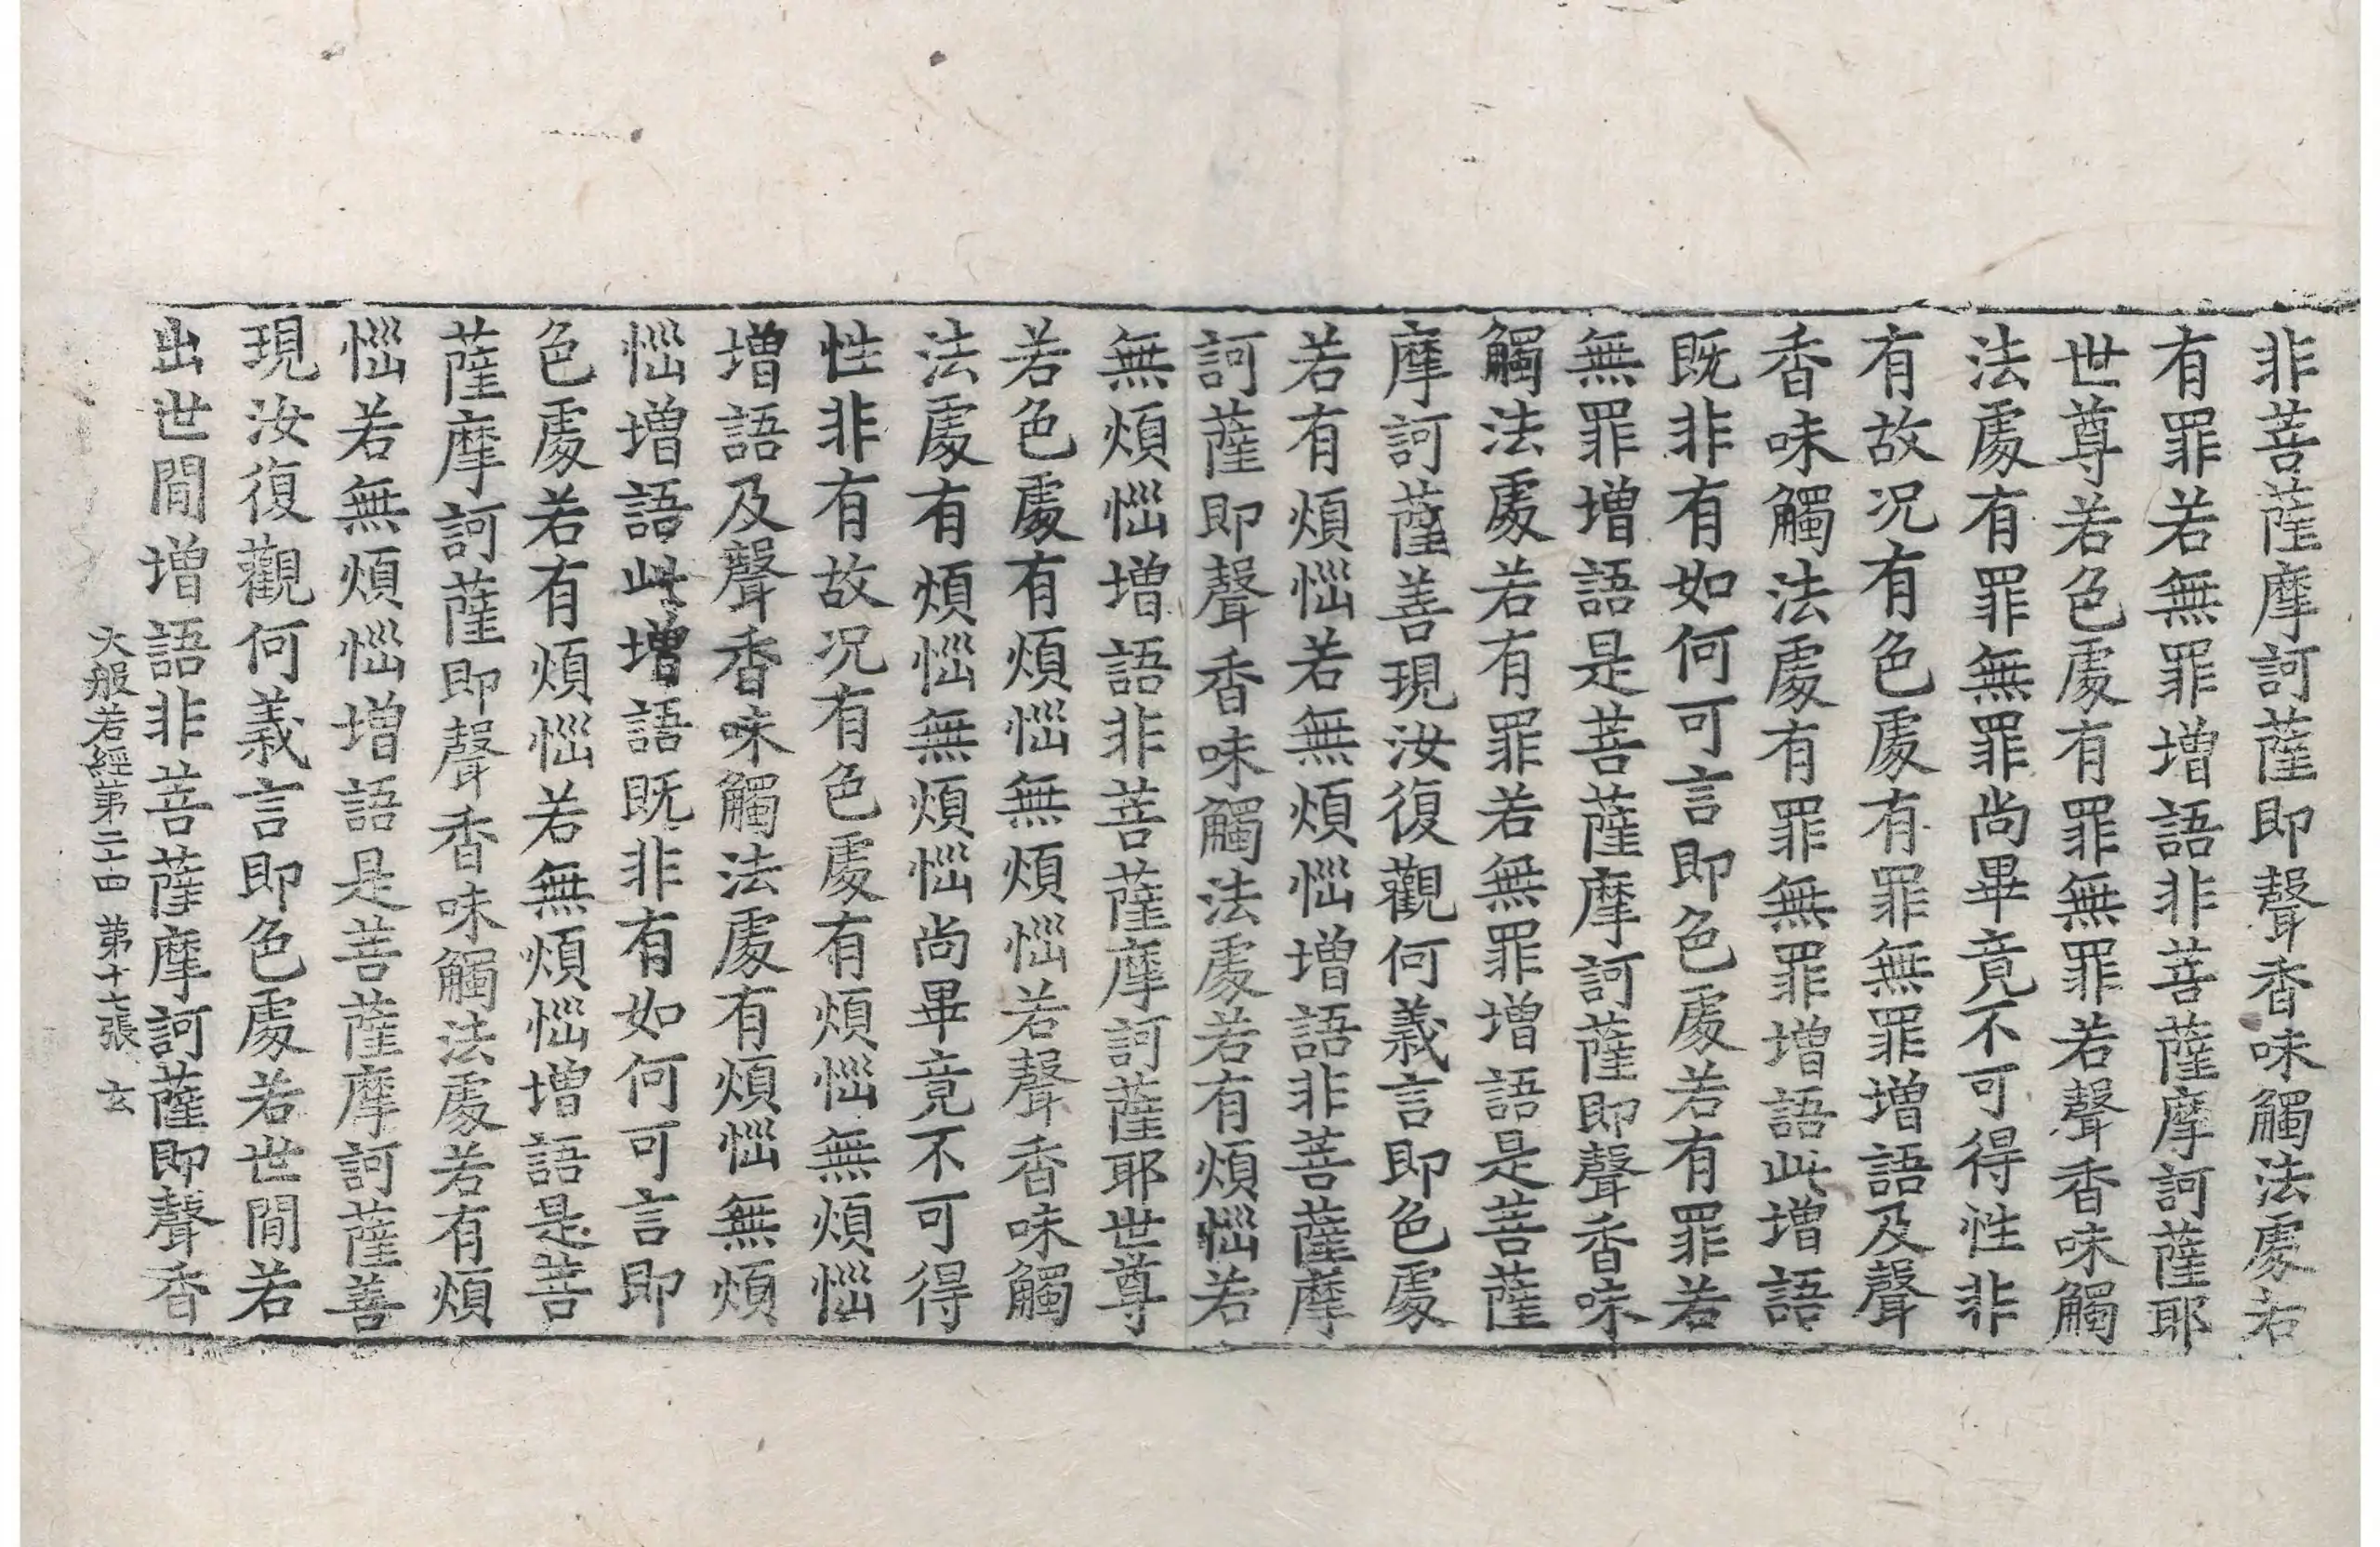 非菩薩摩訶薩即聲香味觸法處若
有罪若無罪增語非菩薩摩訶薩耶
世尊若色處有罪無罪若聲香味觸
法處有罪無罪尚畢竟不可得性非
有故况有色處有罪無罪增語及聲
香味觸法處有罪無罪增語此增語
既非有如何可言即色處若有罪若
無罪增語是菩薩摩訶薩即聲香味
觸法處若有罪若無罪增語是菩薩
摩訶薩善現汝復觀何義言即色處
若有煩惱若無煩惱增語非菩薩摩
訶薩即聲香味觸法處若有煩惱若
無煩惱增語非菩薩摩訶薩耶世尊
若色處有煩惱無煩惱若聲香味觸
法處有煩惱無煩惱尚畢竟不可得
性非有故况有色處有煩惱無煩惱
增語及聲香味觸法處有煩惱無煩
惱增語此增語既非有如何可言即
色處若有煩惱若無煩惱增語是菩
薩摩訶薩即聲香味觸法處若有煩
惱若無煩惱增語是菩薩摩訶薩善
現汝復觀何義言即色處若世閒若
出世閒增語非菩薩摩訶薩即聲香
大般若經第二十四 第十七張 玄